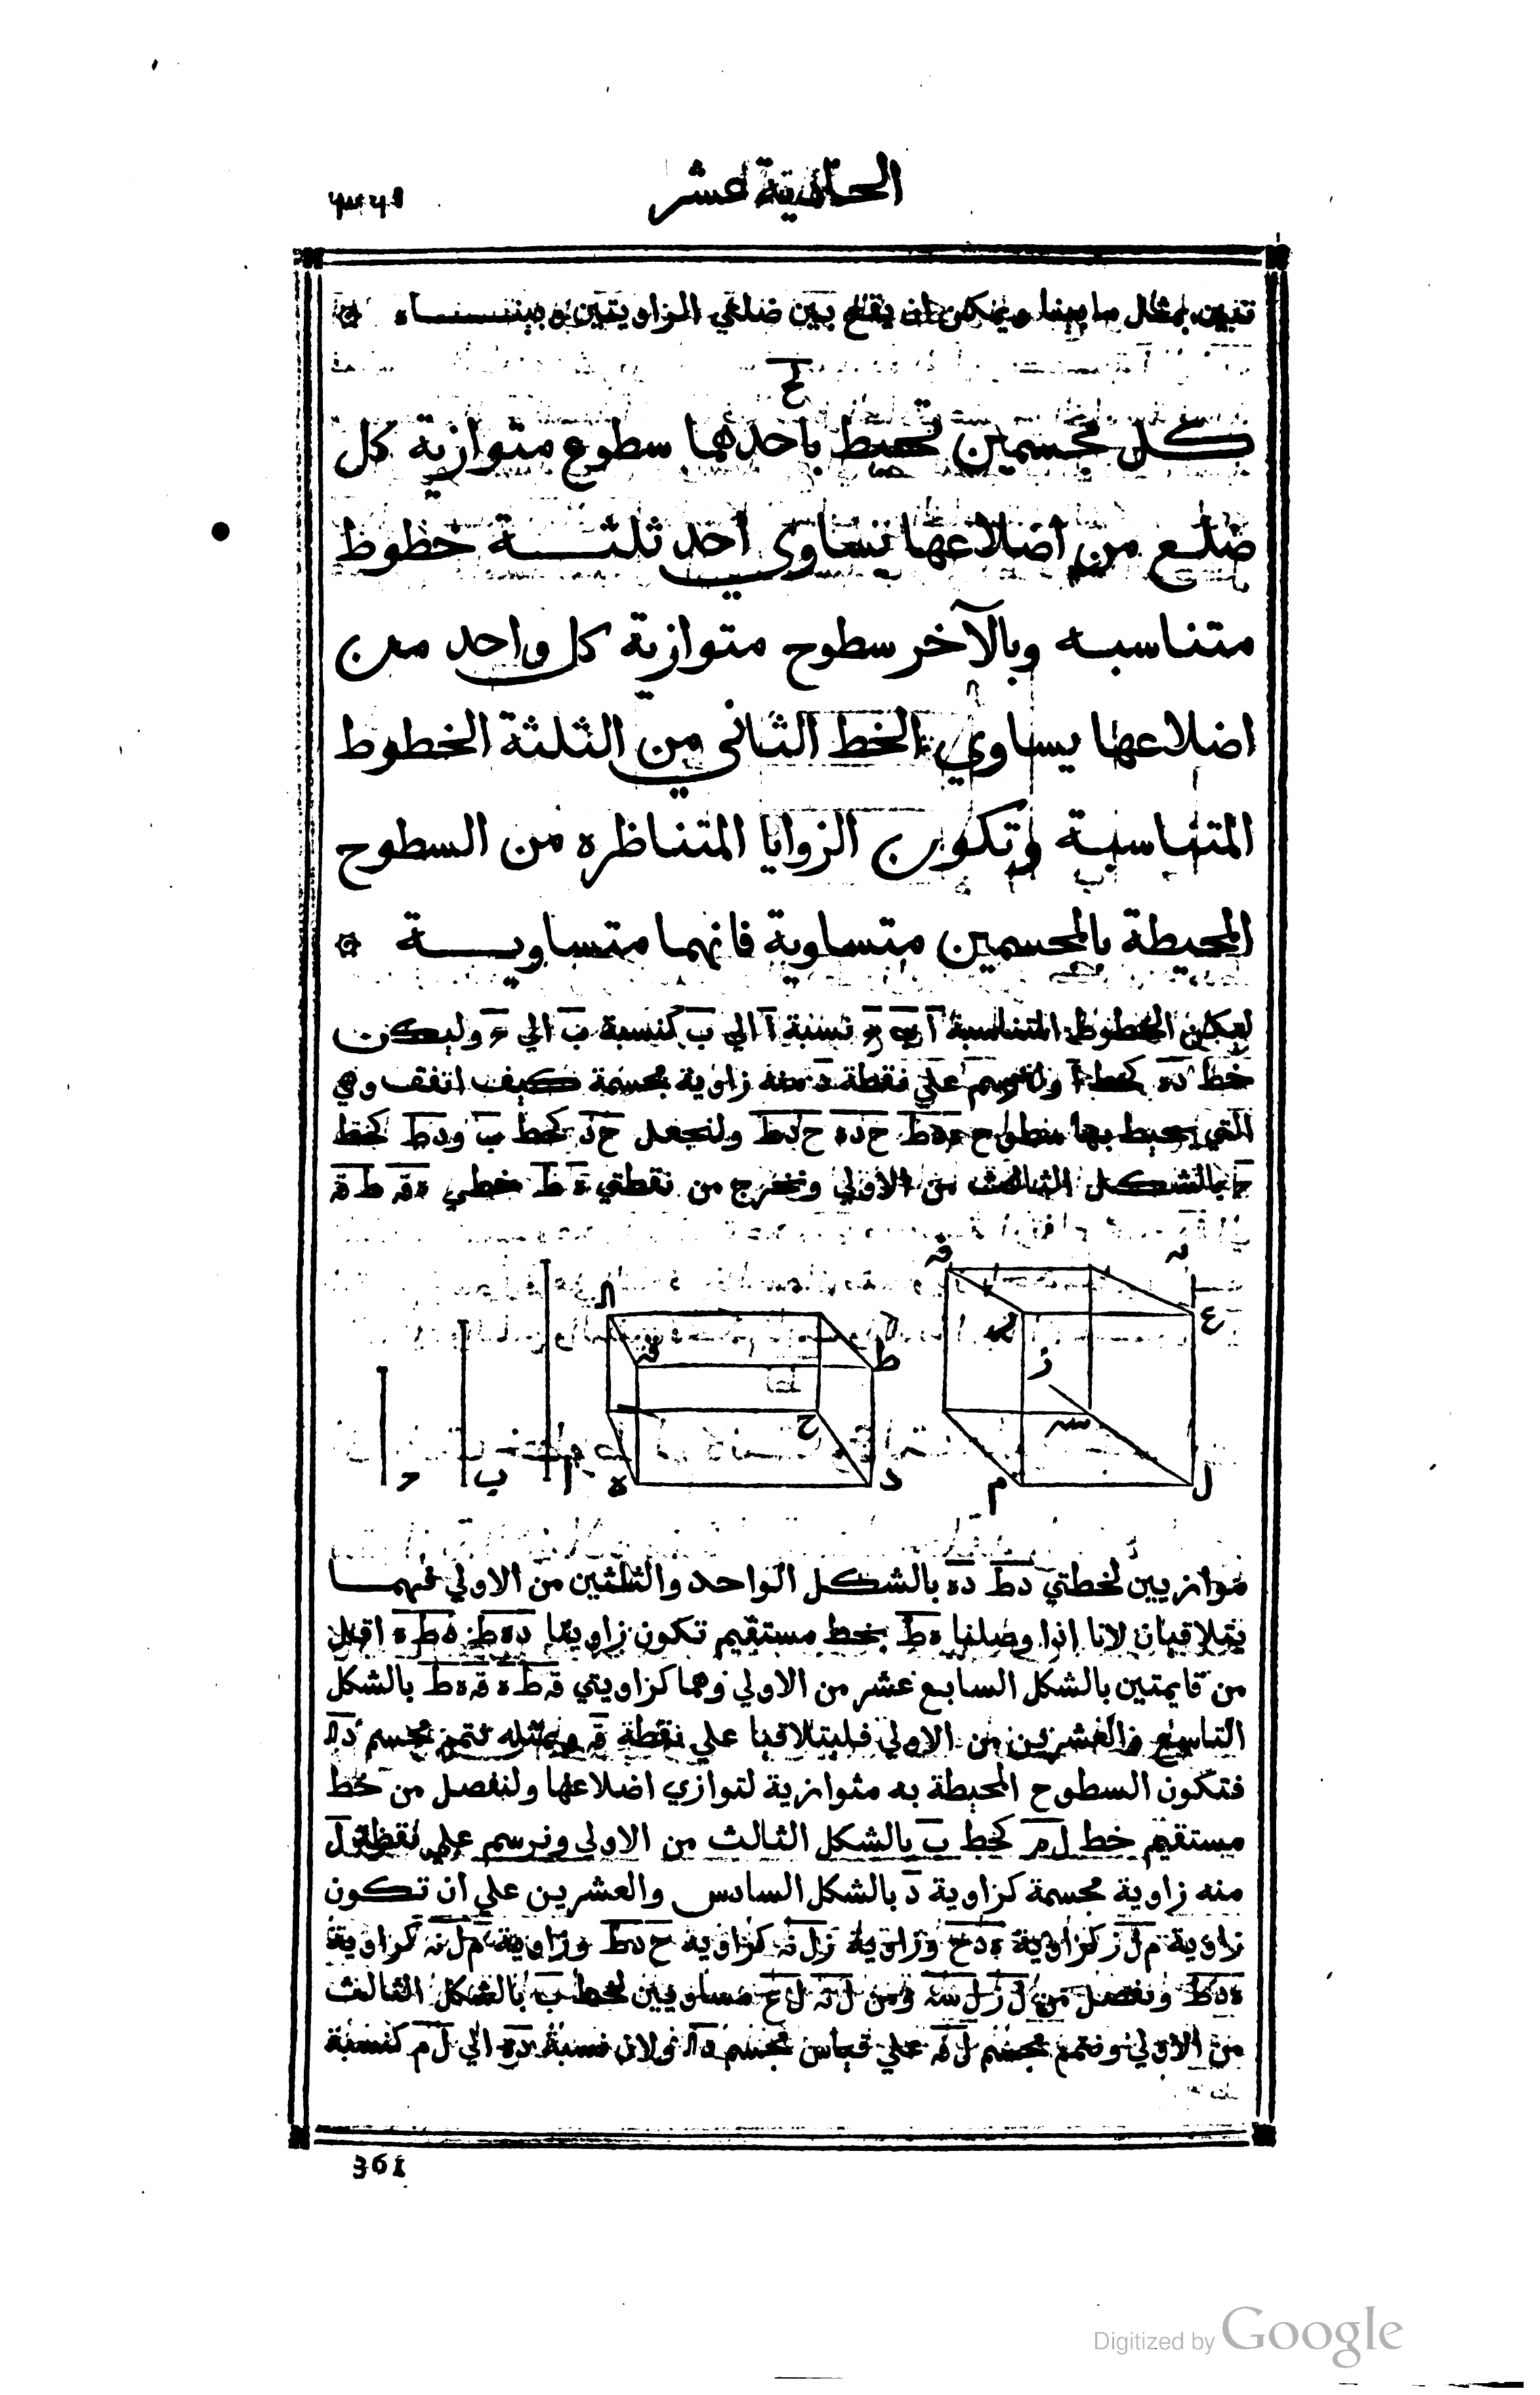 الحادية عشر
٣٦١
تتبين بمثل ما بينا ويمكن ان يقع بين ضلعي الزاويتين وبينـــاه
لح
كل مجسمين تحيط باحدهما سطوح متوازية كل
ضلع من اضلاعها تساوي احد ثلثة خطوط
متناسبه وبالآخر سطوح متوازية كل واحد من
اضلاعها يساوي الخط الثاني من الثلثة الخطوط
المتناسبة وتكون الزوايا المتناظره من السطوح
المحيطة بالمجسمين متساوية فانهما متساويـــة
ليكن الخطوط المتناسبة ا ب ح نسبة ا الي ب كنسبة ب الي ح وليكن
خط ده كخط ا ولنرسم علي نقطة د منه زاوية مجسمة كيف اتفق وهي
التي يحيط بها سطوح ه د ط ح د ه ح د ط ولنجعل ح د كخط ب ود ط كخط
ح بالشكل الثالث من الاولي ونخرج من نقطتي ه ط خطي ه ق ط ق
ق
ن
ع
ص
ز
س
ل
م
ط
ق
ح
د
ه
ا
ب
ح
موازيين لخطتي د ط د ه بالشكل الواحد والثلثين من الاولي فهمـــا
يتلاقيان لانا اذا وصلنا ه ط بخط مستقيم تكون زاويتا د ه ط د ط ه اقل
من قايمتين بالشكل السابع عشر من الاولي وهما كزاويتي ق ط ه ق ه ط بالشكل
التاسع والعشرين من الاولي فليتلاقيا علي نقطة ق وبمثله نتمم مجسم د لا
فتكون السطوح المحيطة به متوازية لتوازي اضلاعها ولنفصل من خط
مستقيم خط ل م كخط ب بالشكل الثالث من الاولي ونرسم علي نقطة ل
منه زاوية مجسمة كزاوية د بالشكل السادس والعشرين علي ان تكون
زاوية م ل ز كزاوية ه د ح وزاوية ز ل ن كزاوية ح د ط وزاوية م ل ن كزاوية
ه د ط ونفصل من ل ز ل س ومن ل ن ل ع مساويين لخط ب بالشكل الثالث
من الاولي ونتمم مجسم ل ق علي قياس مجسم د لا ولان نسبة د ه الي ل م كنسبة
361
Digitized by Google